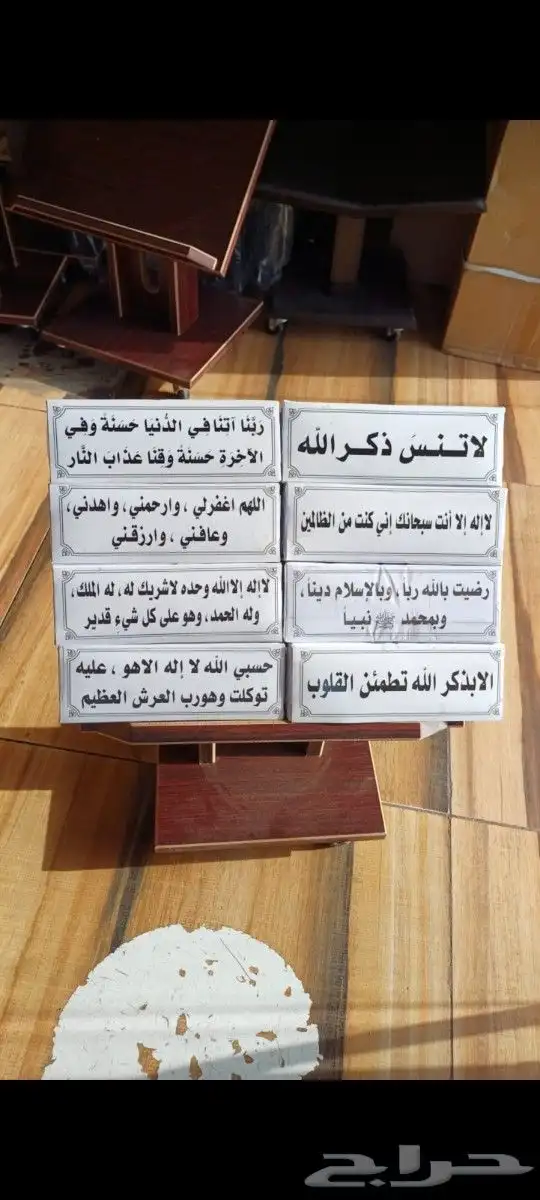 لا تنسَ ذكر الله
رَبَّنَا آتِنَا فِي الدُّنْيَا حَسَنَةً وَفِي
الآخِرَةِ حَسَنَةً وَقِنَا عَذَابَ النَّار
لاإله إلا أنت سبحانك إني كنت من الظالمين
اللهم اغفرلي ، وارحمني ، واهدني ،
وعافني ، وارزقني
رضيت بالله رباً ، وبالإسلام ديناً ،
وبمحمد ﷺ نبياً
لاإله إلاالله وحده لاشريك له، له الملك،
وله الحمد، وهو على كل شيءٍ قدير
الابذكر الله تطمئن القلوب
حسبي الله لا إله الاهو ، عليه
توكلت وهورب العرش العظيم
حراج